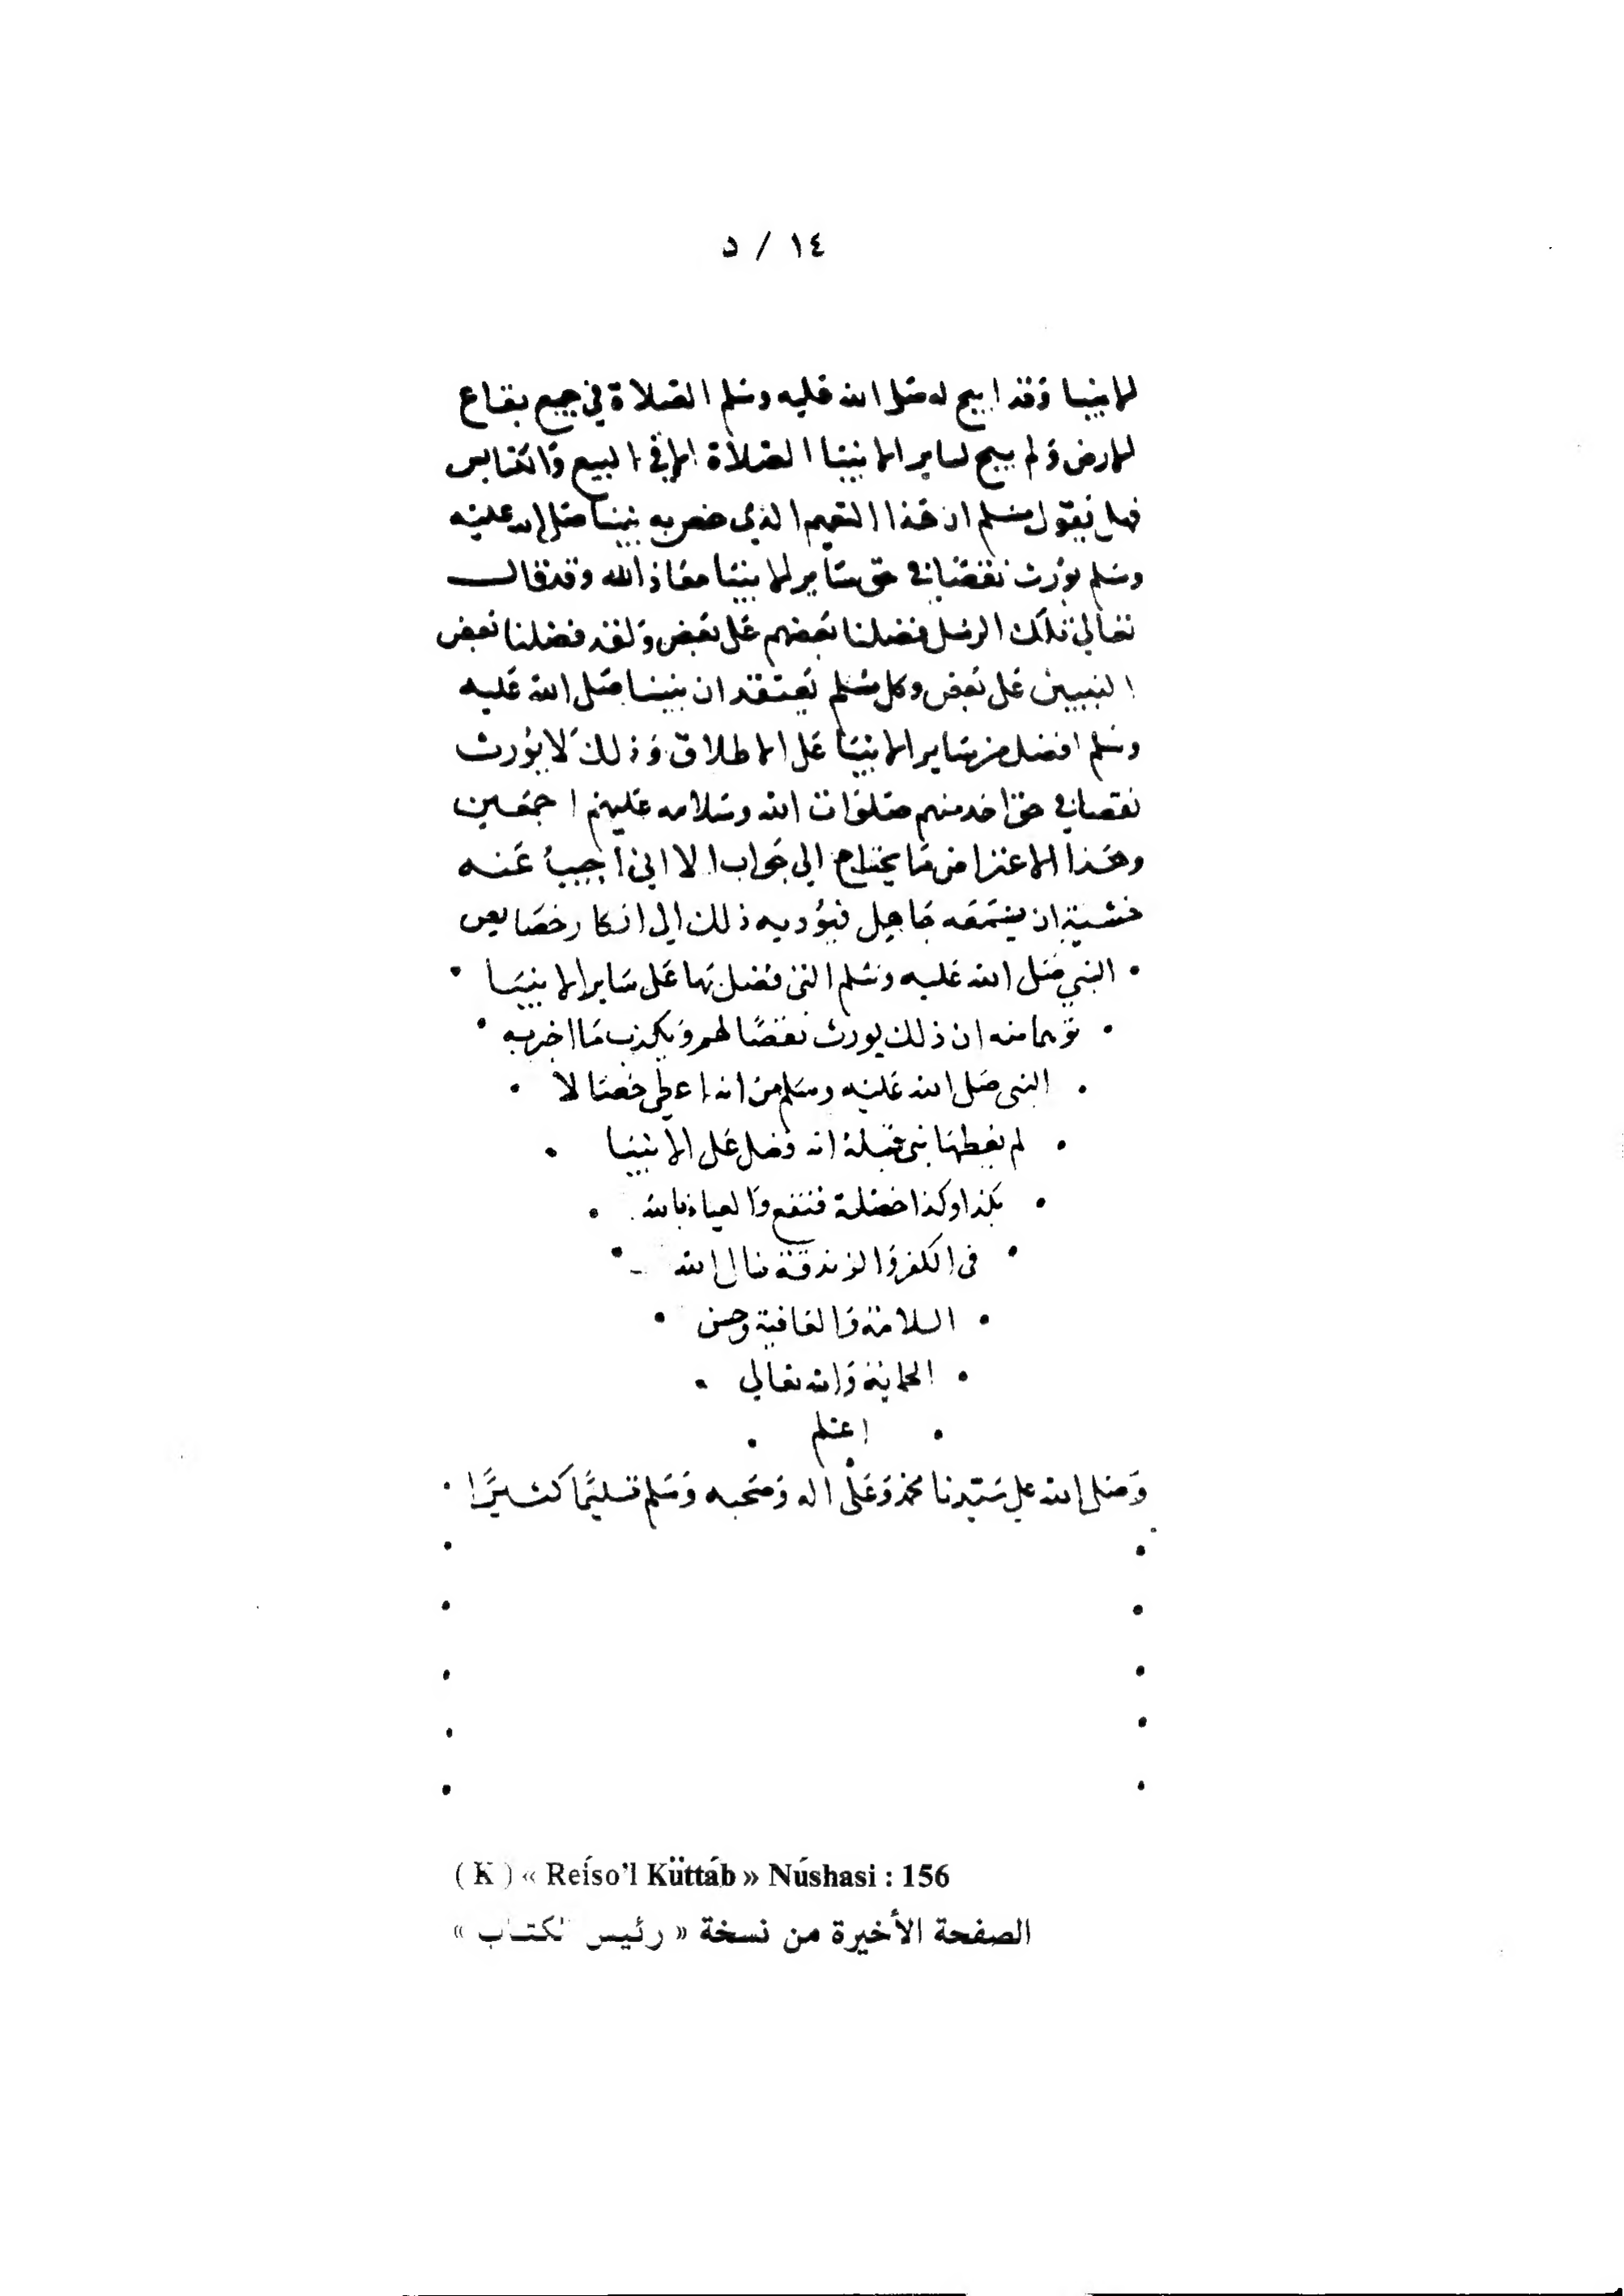 ٥ / ١٤
للانبيا وقد ابيح له صلى الله عليه وسلم الصلاة في جميع بقاع
الارض ولم يبح لساير الانبيا الصلاة الا في البيع والكنايس
فهل يقول مسلم ان هذا التعميم الذي خص به نبينا صلى الله عليه
وسلم يورث نقصا في حق ساير الانبيا معاذ الله وقد قال
تعالى تلك الرسل فضلنا بعضهم على بعض ولقد فضلنا بعض
النبيين على بعض وكل مسلم يعتقد ان نبينا صلى الله عليه
وسلم افضل من ساير الانبيا على الاطلاق وذلك لا يورث
نقصا في حق احد منهم صلوات الله وسلامه عليهم اجمعين
وهذا الاعتراض ما يحتاج الى جواب الا اني اجيب عنه
خشية ان يسمعه جاهل فيؤديه ذلك الى انكار خصايص
• النبي صلى الله عليه وسلم التي فضل بها على ساير الانبيا •
• توهما منه ان ذلك يورث نقصا لهم ويكذب ما اخبر به •
• النبي صلى الله عليه وسلم من انه اعطي خصالا •
• لم يعطها نبي قبله انه فضل على الانبيا •
• بكذا وكذا خصلة فتقع والعياذ بالله •
• في الكفر والزندقة نسال الله •
• السلامة والعافية وحسن •
• الخاتمة والله تعالى •
• اعلم •
وصلى الله على سيدنا محمد وعلى اله وصحبه وسلم تسليما كثيرا •
( K ) « Reíso'l Küttáb » Núshasi : 156
الصفحة الأخيرة من نسخة « رئيس الكتاب »